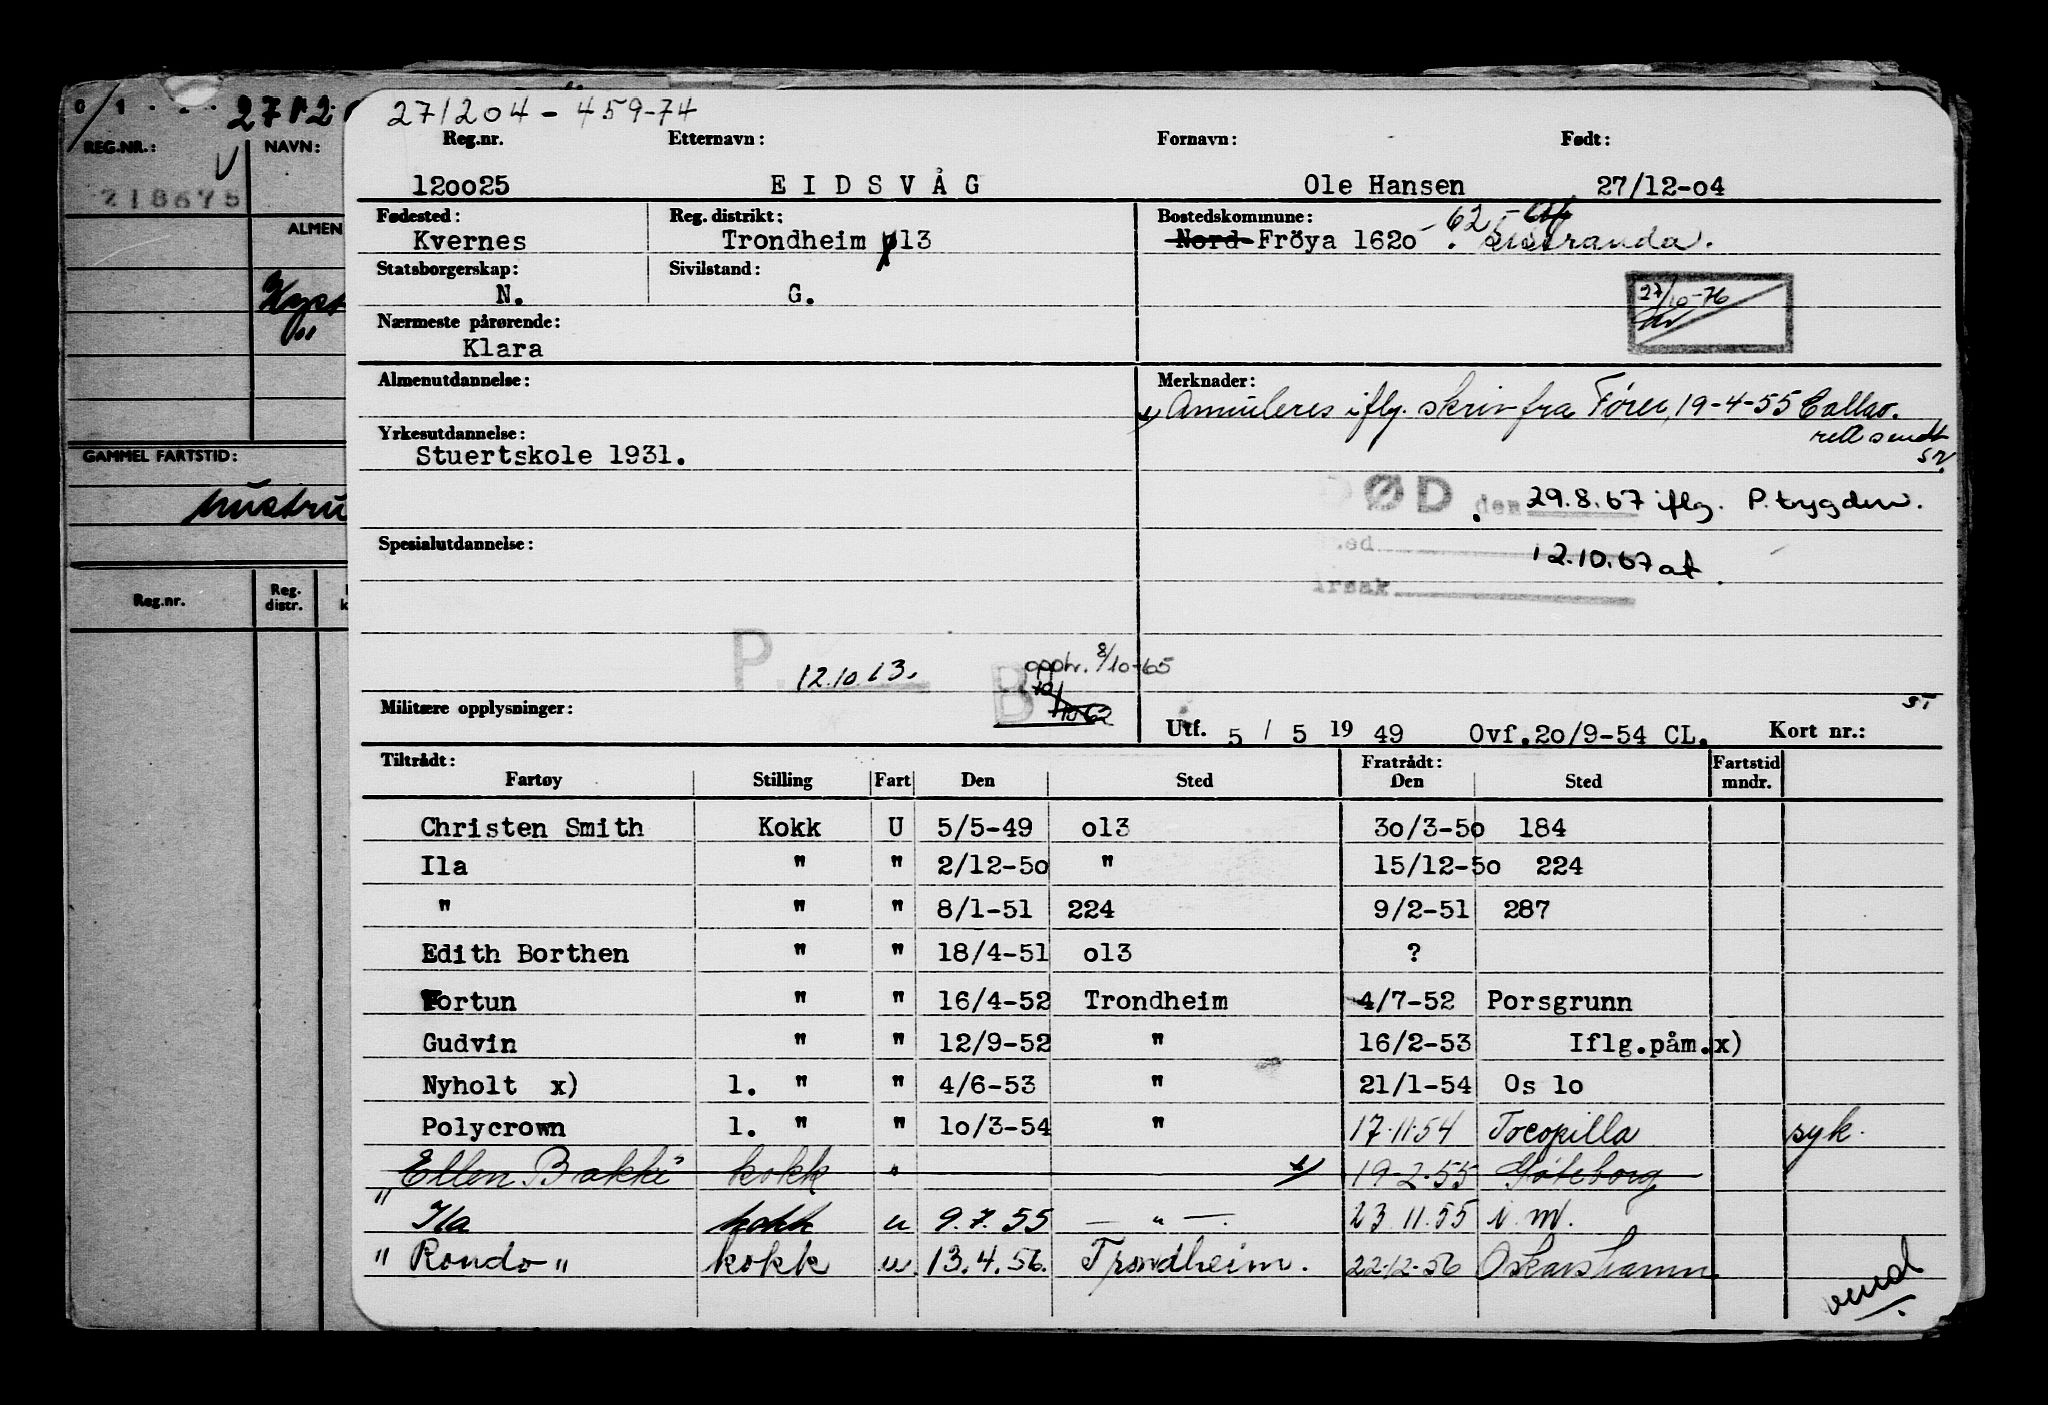 0 1 . . . 2712
REG.NR.: NAVN:
218675
ALMEN
GAMMEL FARTSTID:
Reg.nr. Reg. distr. k
271204 - 459-74
Reg.nr. Etternavn: Fornavn: Født:
120025 EIDSVÅG Ole Hansen 27/12-04
Fødested: Reg. distrikt: Bostedskommune:
Kvernes Trondheim 013 Nord-Fröya 1620 - 62 Sistranda.
Statsborgerskap: Sivilstand:
N. G.
27/10-76
Nærmeste pårørende:
Klara
Almenutdannelse: Merknader:
Annuleres iflg. skriv fra Fører, 19-4-55 Callao.
rell sendt
Yrkesutdannelse:
Stuertskole 1931.
DØD den 29.8.67 iflg. P.trygden.
Sted 12.10.67 at.
Årsak
Spesialutdannelse:
P. 12.10.13. B opphr. 8/10-65
Militære opplysninger:
Utf. 5 / 5 19 49 Ovf.20/9-54 CL. Kort nr.:
Tiltrådt: Fratrådt: Fartstid
Fartøy Stilling Fart Den Sted Den Sted mndr.
Christen Smith Kokk U 5/5-49 013 30/3-50 184
Ila " " 2/12-50 " 15/12-50 224
" " " 8/1-51 224 9/2-51 287
Edith Borthen " " 18/4-51 013 ?
Fortun " " 16/4-52 Trondheim 4/7-52 Porsgrunn
Gudvin " " 12/9-52 " 16/2-53 Iflg.påm.x)
Nyholt x) 1. " " 4/6-53 " 21/1-54 Os lo
Polycrown 1. " " 10/3-54 " 17.11.54 Tocopilla syk.
Ellen Bakke kokk " 19-2-55 Göteborg
" Ila kokk u 9.7.55 — " —. 23.11.55 i.m.
" Rondo " kokk u. 13.4.56. Trondheim. 22-12-56 Oskarshamn
vend.